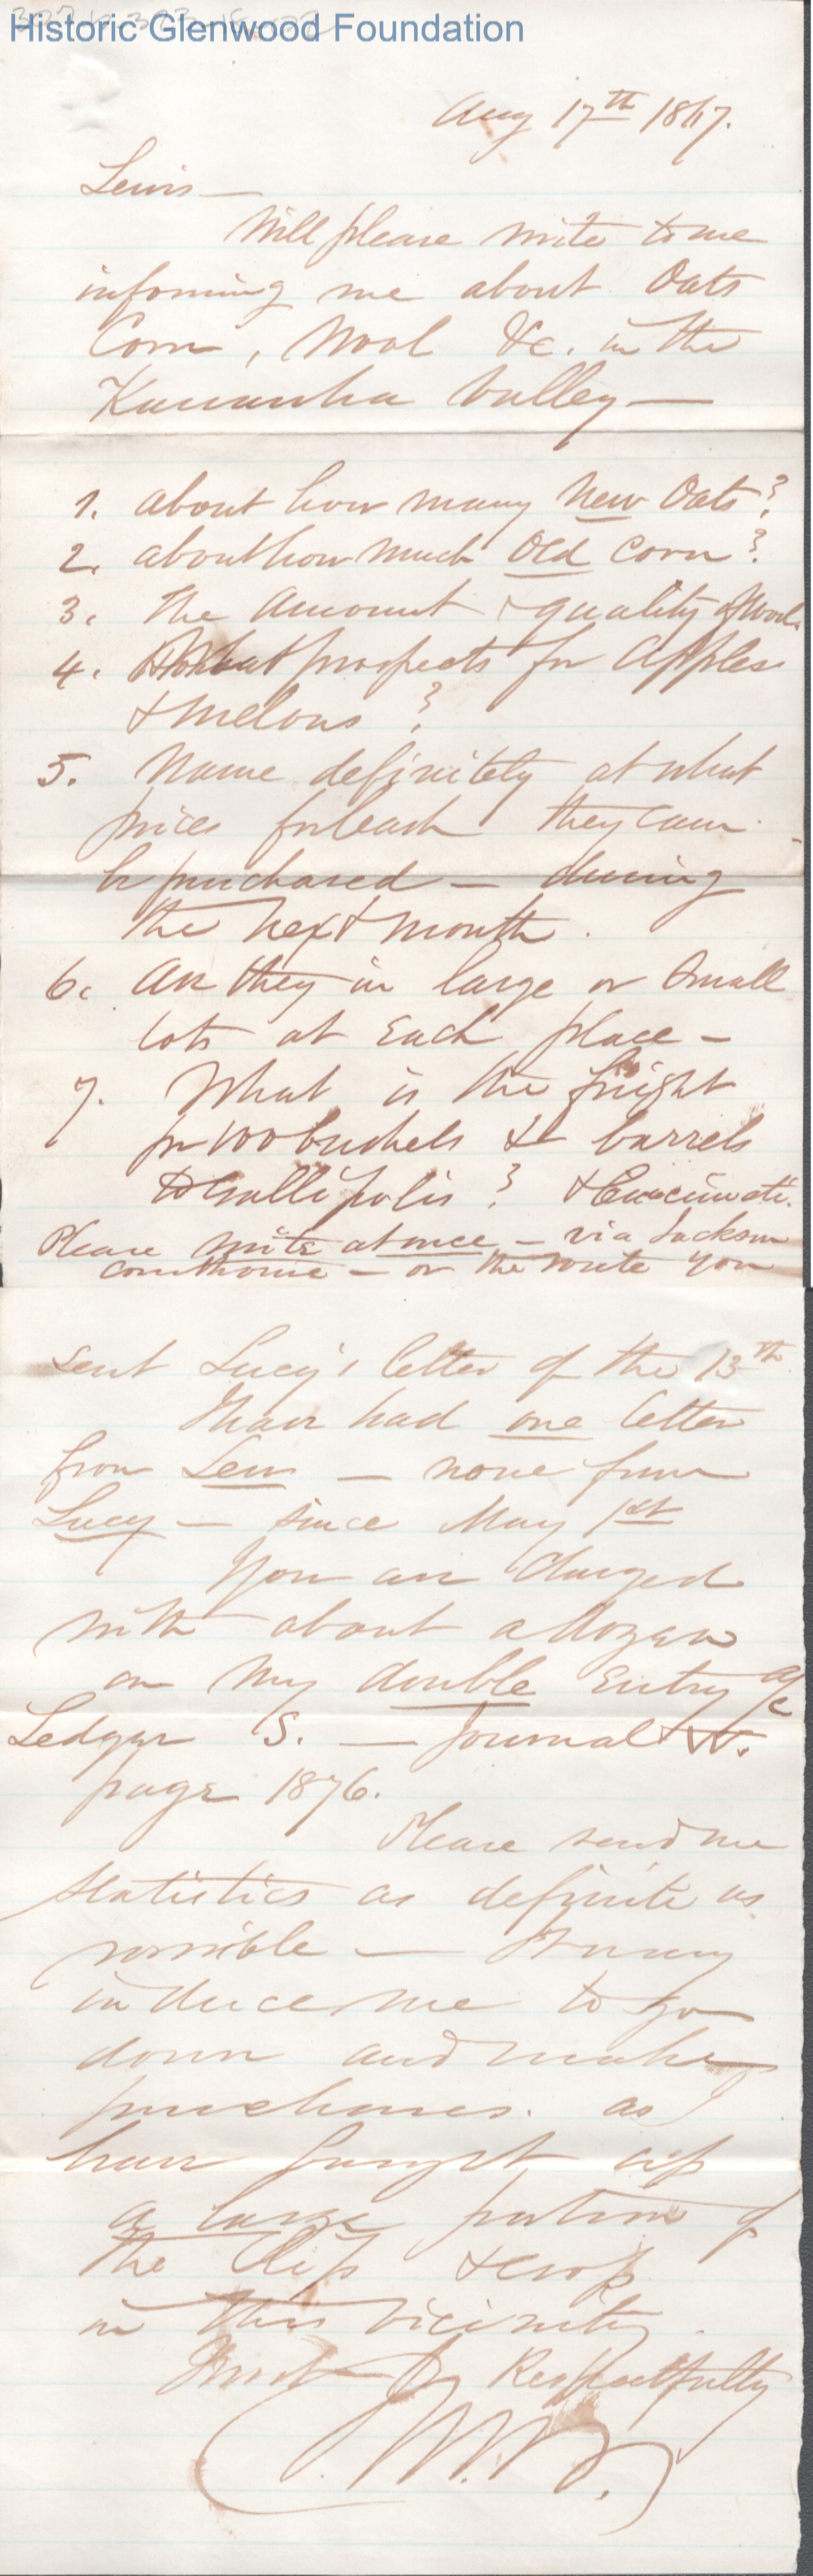 Historic Glenwood Foundation
Aug 17th 1867.
Lewis —
Will please write to me
informing me about Oats
Corn, Wool &c. in the
Kanawha Valley —
1. about how many New Oats?
2. about how much Old Corn?
3. The amount & quality of Wool.
4. What prospects for Apples
& Melons?
5. Name definitely at what
prices for each they can
be purchased — during
the next month.
6. Are they in large or small
lots at Each place —
7. What is the freight
pr 100 bushels & barrels
to Gallipolis? & Cincinnati.
Please write at once — via Jackson
courthouse — or the route you
sent Lucy's letter of the 13th
I have had one letter
from Lew — none from
Lucy — since May 1st
You are charged
with about a dozen
on my double Entry a/c
Ledger S. — Journal W.
page 1876.
Please send me
statistics as definite as
possible — It may
induce me to go
down and make
purchases. as I
have bought up
a large portion of
the Clip & crop
in this vicinity.
Most Respectfully